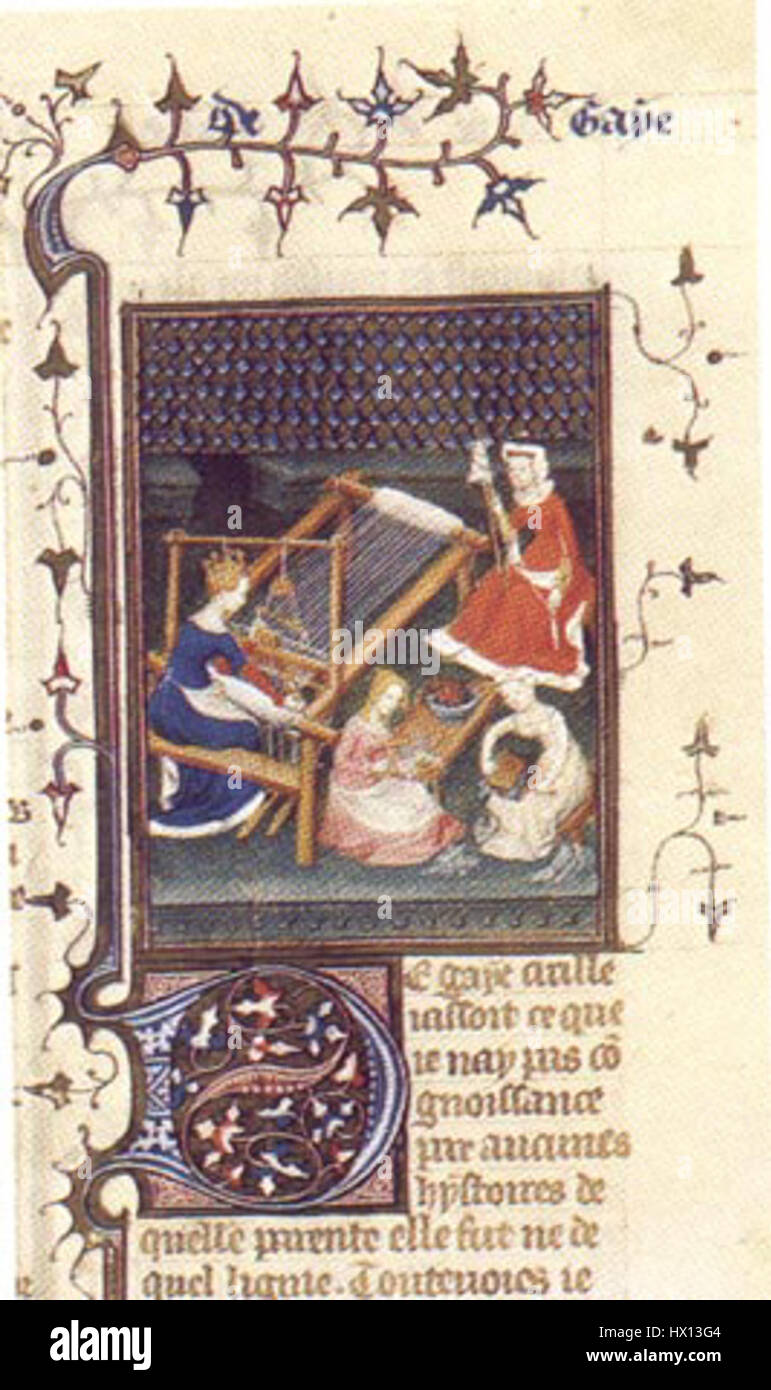 de Gaye
De gaye cirille
iassoit ce que
ie nay pas cō
gnoissance
par aucunes
hystoires de
quelle parente elle fut ne de
quel lignie. Toutevoies ie
alamy
Image ID: HX13G4
www.alamy.com